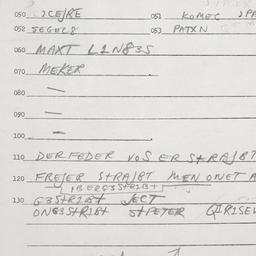 050 JCEJRE 051 KOMEC
052 SEGEL8 053 PATXN
060 MAXT LIN83S
070 MEKER
080 —
090 —
100 —
110 DER FEDER VOS ER StRAJBT
120 FREJER StRAJBT MEN ONET A
IBERG3StRIBt
130 G3StRIBt JECT
ONG3StRIBt StPETER